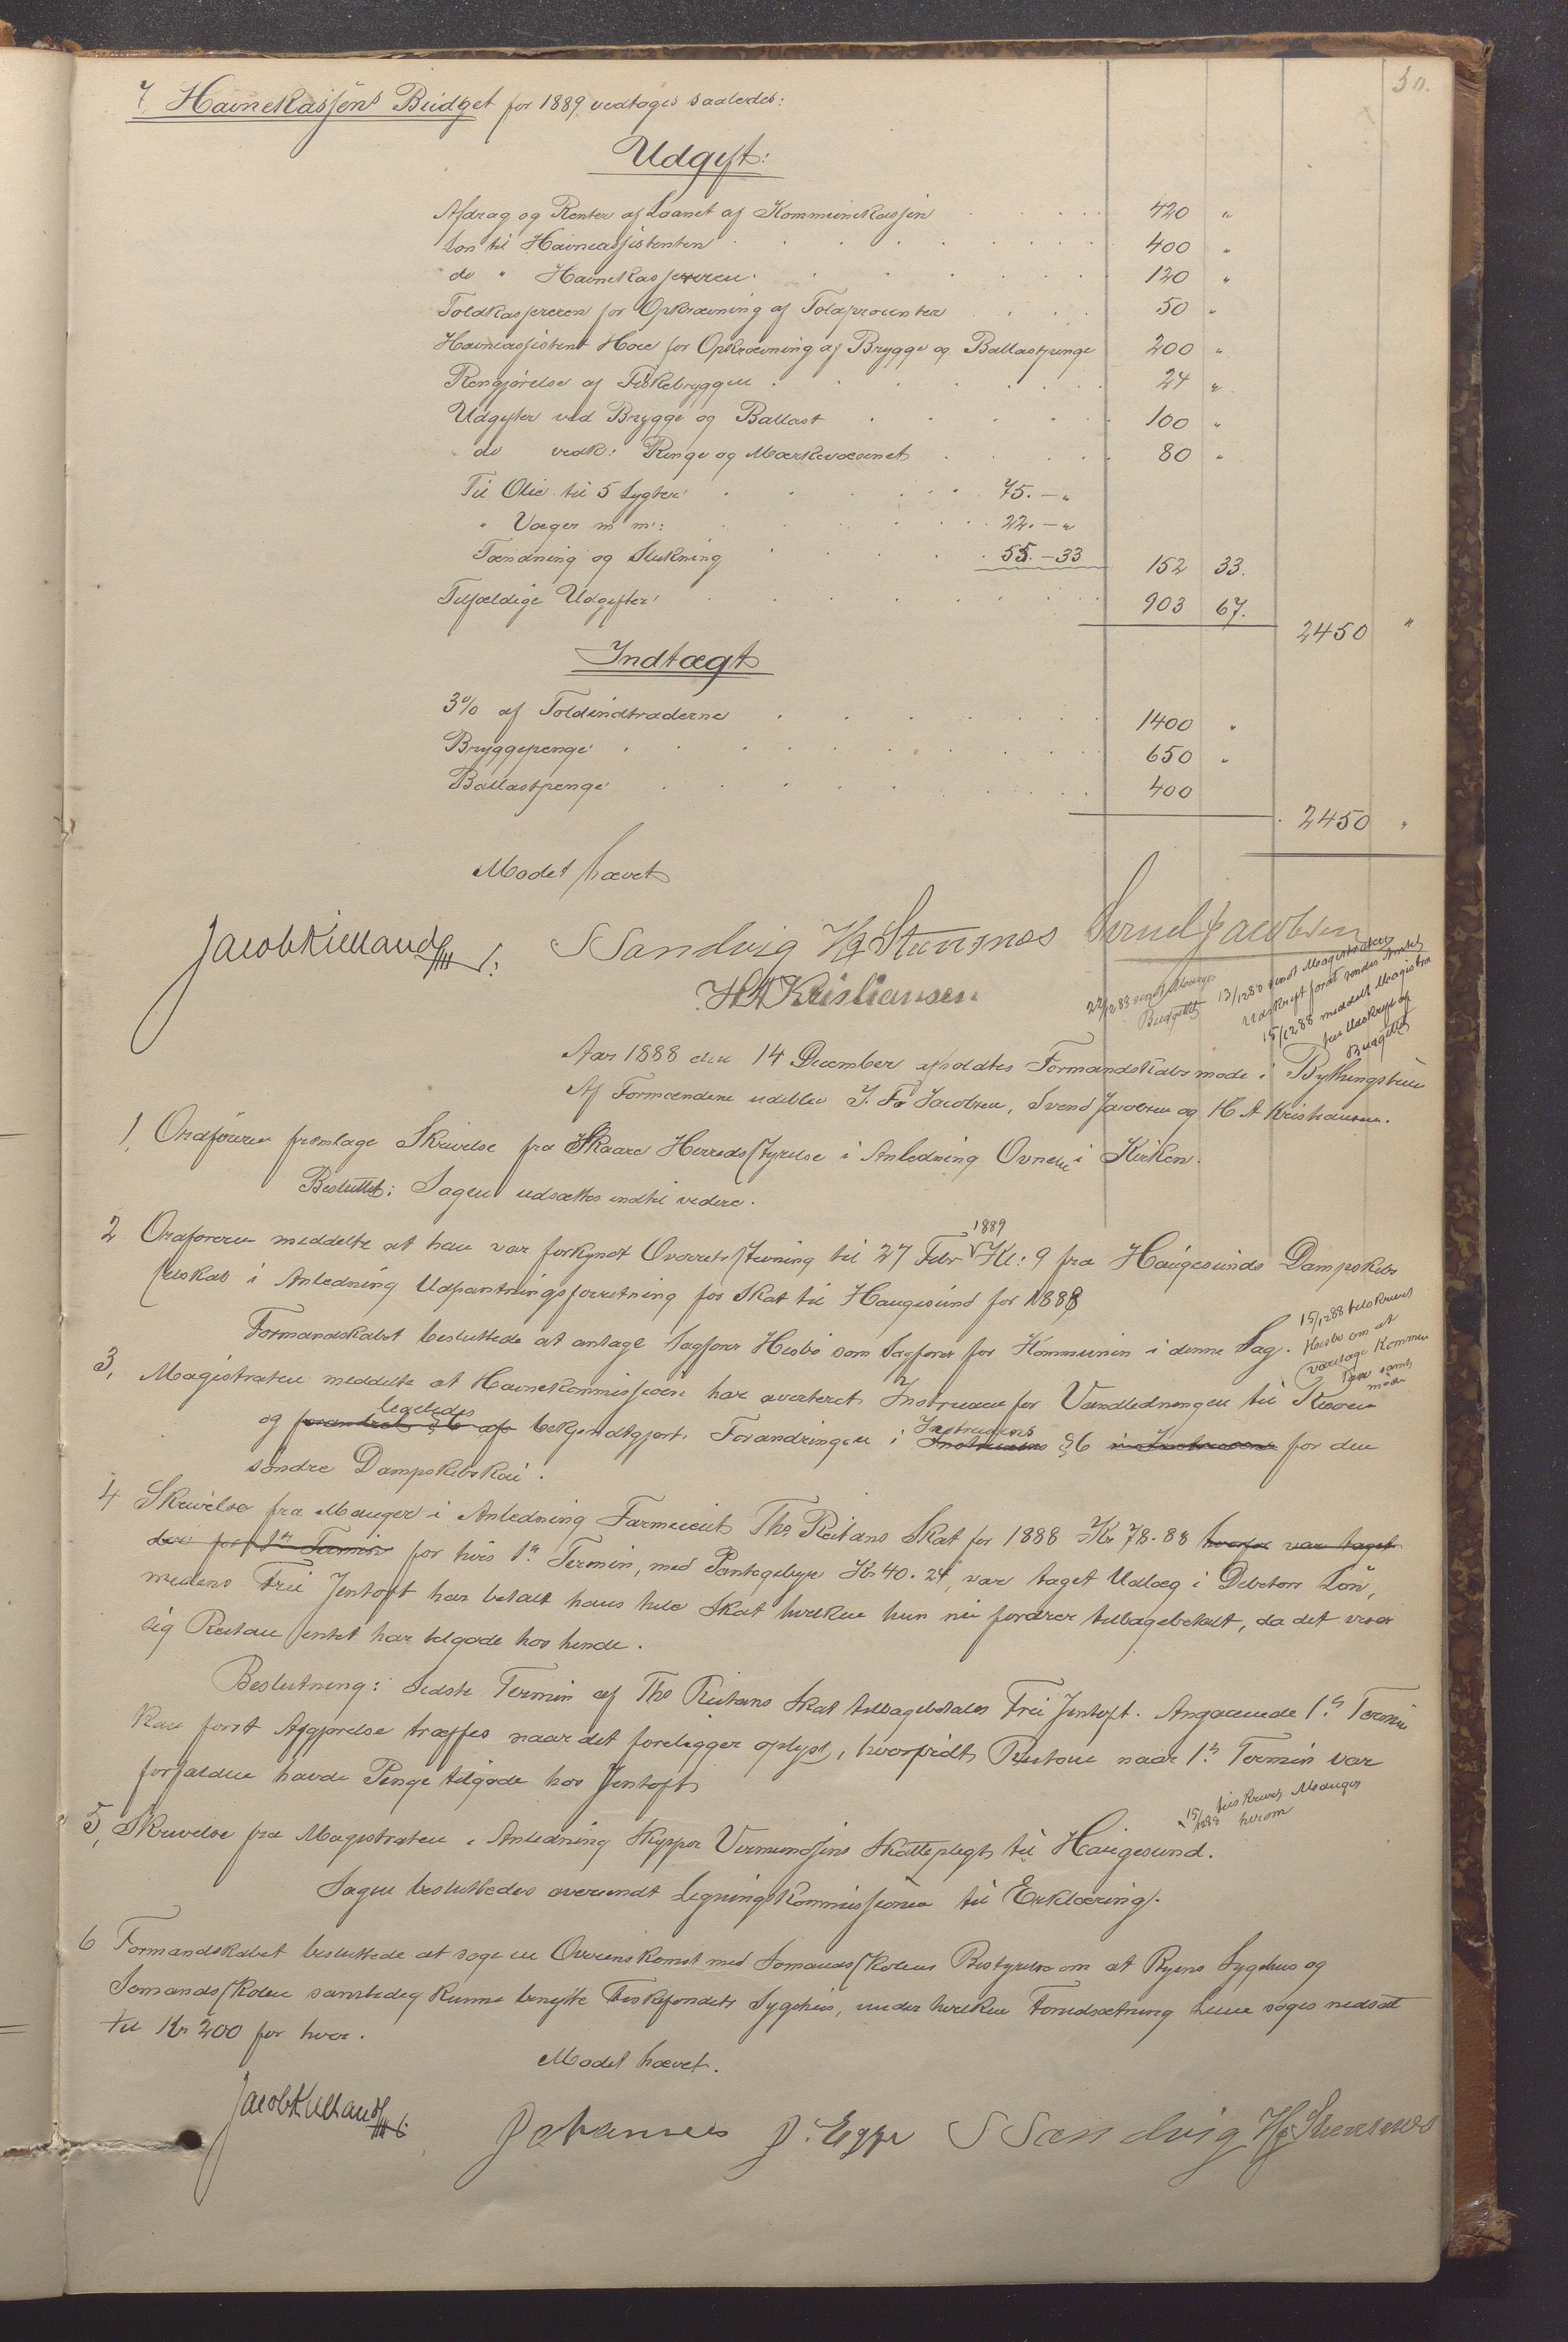 30.
7. Havnekassens Budget for 1889 vedtoges saaledes:
Udgift:
Afdrag og Renter af Laanet af Kommunekassen 420 "
Løn til Havneassistenten 400 "
do " Havnekassereren 120 "
Toldkassereren for Opkrævning af Toldprocenter 50 "
Havneassistent Hoie for Opkrævning af Brygge og Ballastpenge 200 "
Rengjørelse af Fiskebryggen 24 "
Udgifter ved Brygge og Ballast 100 "
do vedk: Ringe og Mærkevæsenet 80 "
Til Olie til 5 Lygter 75.- "
" Væger m m: 22.- "
Tænding og Slukning 55.-33 152 33.
Tilfældige Udgifter 903 67.
2450 "
Indtægt
3% af Toldindtraderne 1400 "
Bryggepenge 650 "
Ballastpenge 400
2450 "
Mødet hævet
Jacob Kielland S Sandvig Svend Jacobsen
H A Kristiansen
22/12 88 sendt Mauger
Budgettet
13/12 88 sendt Magistraten
Udskrift forat sendes Amtet
15/12 88 meddelt Magistra
ten Udskrift af
Budgettet
Aar 1888 den 14 December afholdtes Formandskabsmøde i Bythingstuen
Af Formændene udeblev J. Fr Jacobsen, Svend Jacobsen og H A Kristiansen.
1, Ordføreren fremlagde Skrivelse fra Skaare Herredsstyrelse i Anledning Ovnen i Kirken.
Besluttet: Sagen udsættes indtil videre.
2 Ordføreren meddelte at han var forkyndt Overretsstevning til 27 Febr 1889 Kl: 9 fra Haugesunds Dampskibs
selskab i Anledning Udpantningsforretning for Skat til Haugesund for 1888
Formandskabet besluttede at antage Sagfører Hesbø som Sagfører for Kommunen i denne Sag.
15/12 88 tilskrevet
Hesbø om at
varetage Kommu
nens
møde
3, Magistraten meddelte at Havnekommissionen har averteret Instruxen for Vandledningen til Kaien
og forandret § 6 af ligeledes bekjendtgjort Forandringen i Instruxens § 6 instruxens for den
søndre Dampskibskai.
4 Skrivelse fra Mauger i Anledning Farmeieut Ths Reitans Skat for 1888 Kr 78.88 hvorfor var taget
der for 1ste Termin for hvis 1ste Termin, med Pantegebyr Kr 40.24, var taget Udlæg i Debitors Løn,
medens Fru Jentoft har betalt hans hele Skat hvilken hun nu fordrer tilbagebetalt, da det viser
sig Reitan intet har tilgode hos hende.
Beslutning: Sidste Termin af Ths Reitans Skat tilbagebetales Fru Jentoft. Angaaende 1ste Termin
kan først Afgjørelse træffes naar det foreligger oplyst, hvorvidt Reitan naar 1ste Termin var
forfalden havde Penge tilgode hos Jentoft
15/12 88 tilskrevet Mauger
herom
5, Skrivelse fra Magistraten i Anledning Skipper Vermundsens Skattepligt til Haugesund.
Sagen besluttedes oversendt Ligningskommissionen til Erklæring.
6 Formandskabet besluttede at søge en Overenskomst med Sømandsskolens Bestyrelse om at Byens Sygehus og
Sømandsskolen samtidig kunne benytte Fiskefondets Sygehus, under hvilken Forudsætning Leien søges nedsat
til Kr 200 for hver.
Mødet hævet.
Jacob Kielland Johannes J. Egge S Sandvig